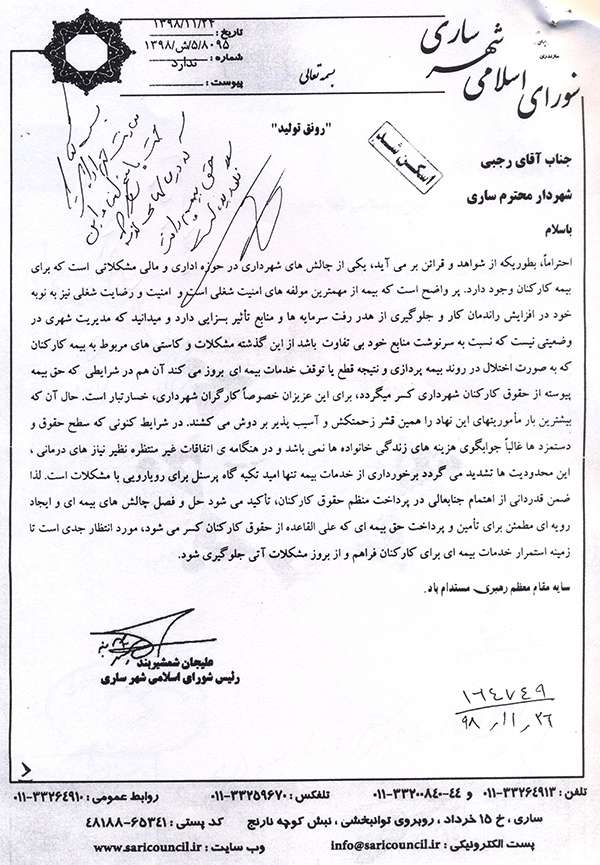 شورای اسلامی شهر ساری
بسمه تعالی
تاریخ : ۱۳۹۸/۱۱/۲۴
شماره : ۱۳۹۸/ش/۵/۸۰۹۵
پیوست : ندارد
"رونق تولید"
اسکن شد
جناب آقای رجبی
شهردار محترم ساری
باسلام
احتراماً، بطوریکه از شواهد و قرائن بر می آید، یکی از چالش های شهرداری در حوزه اداری و مالی مشکلاتی است که برای
بیمه کارکنان وجود دارد. پر واضح است که بیمه از مهمترین مولفه های امنیت شغلی است و امنیت و رضایت شغلی نیز به نوبه
خود در افزایش راندمان کار و جلوگیری از هدر رفت سرمایه ها و منابع تأثیر بسزایی دارد و میدانید که مدیریت شهری در
وضعیتی نیست که نسبت به سرنوشت منابع خود بی تفاوت باشد از این گذشته مشکلات و کاستی های مربوط به بیمه کارکنان
که به صورت اختلال در روند بیمه پردازی و نتیجه قطع یا توقف خدمات بیمه ای بروز می کند آن هم در شرایطی که حق بیمه
پیوسته از حقوق کارکنان شهرداری کسر میگردد، برای این عزیزان خصوصاً کارگران شهرداری، خسارتبار است. حال آن که
بیشترین بار مأموریتهای این نهاد را همین قشر زحمتکش و آسیب پذیر بر دوش می کشند. در شرایط کنونی که سطح حقوق و
دستمزد ها غالباً جوابگوی هزینه های زندگی خانواده ها نمی باشد و در هنگامه ی اتفاقات غیر منتظره نظیر نیاز های درمانی ،
این محدودیت ها تشدید می گردد برخورداری از خدمات بیمه تنها امید تکیه گاه پرسنل برای رویارویی با مشکلات است. لذا
ضمن قدردانی از اهتمام جنابعالی در پرداخت منظم حقوق کارکنان، تأکید می شود حل و فصل چالش های بیمه ای و ایجاد
رویه ای مطمئن برای تأمین و پرداخت حق بیمه ای که علی القاعده از حقوق کارکنان کسر می شود، مورد انتظار جدی است تا
زمینه استمرار خدمات بیمه ای برای کارکنان فراهم و از بروز مشکلات آتی جلوگیری شود.
سایه مقام معظم رهبری مستدام باد.
علیجان شمشیربند
رئیس شورای اسلامی شهر ساری
۱۶۴۷۴۹
۹۸,۱۱,۲۶
تلفن : ۳۳۲۶۴۹۱۳-۰۱۱ و ۴۴-۳۳۲۰۰۸۴۰-۰۱۱ تلفکس : ۳۳۲۵۹۶۷۰-۰۱۱ روابط عمومی : ۳۳۲۶۴۹۱۰-۰۱۱
ساری ، خ ۱۵ خرداد ، روبروی توانبخشی ، نبش کوچه نارنج کد پستی : ۶۵۳۴۱-۴۸۱۸۸
پست الکترونیکی : info@saricouncil.ir وب سایت : www.saricouncil.ir